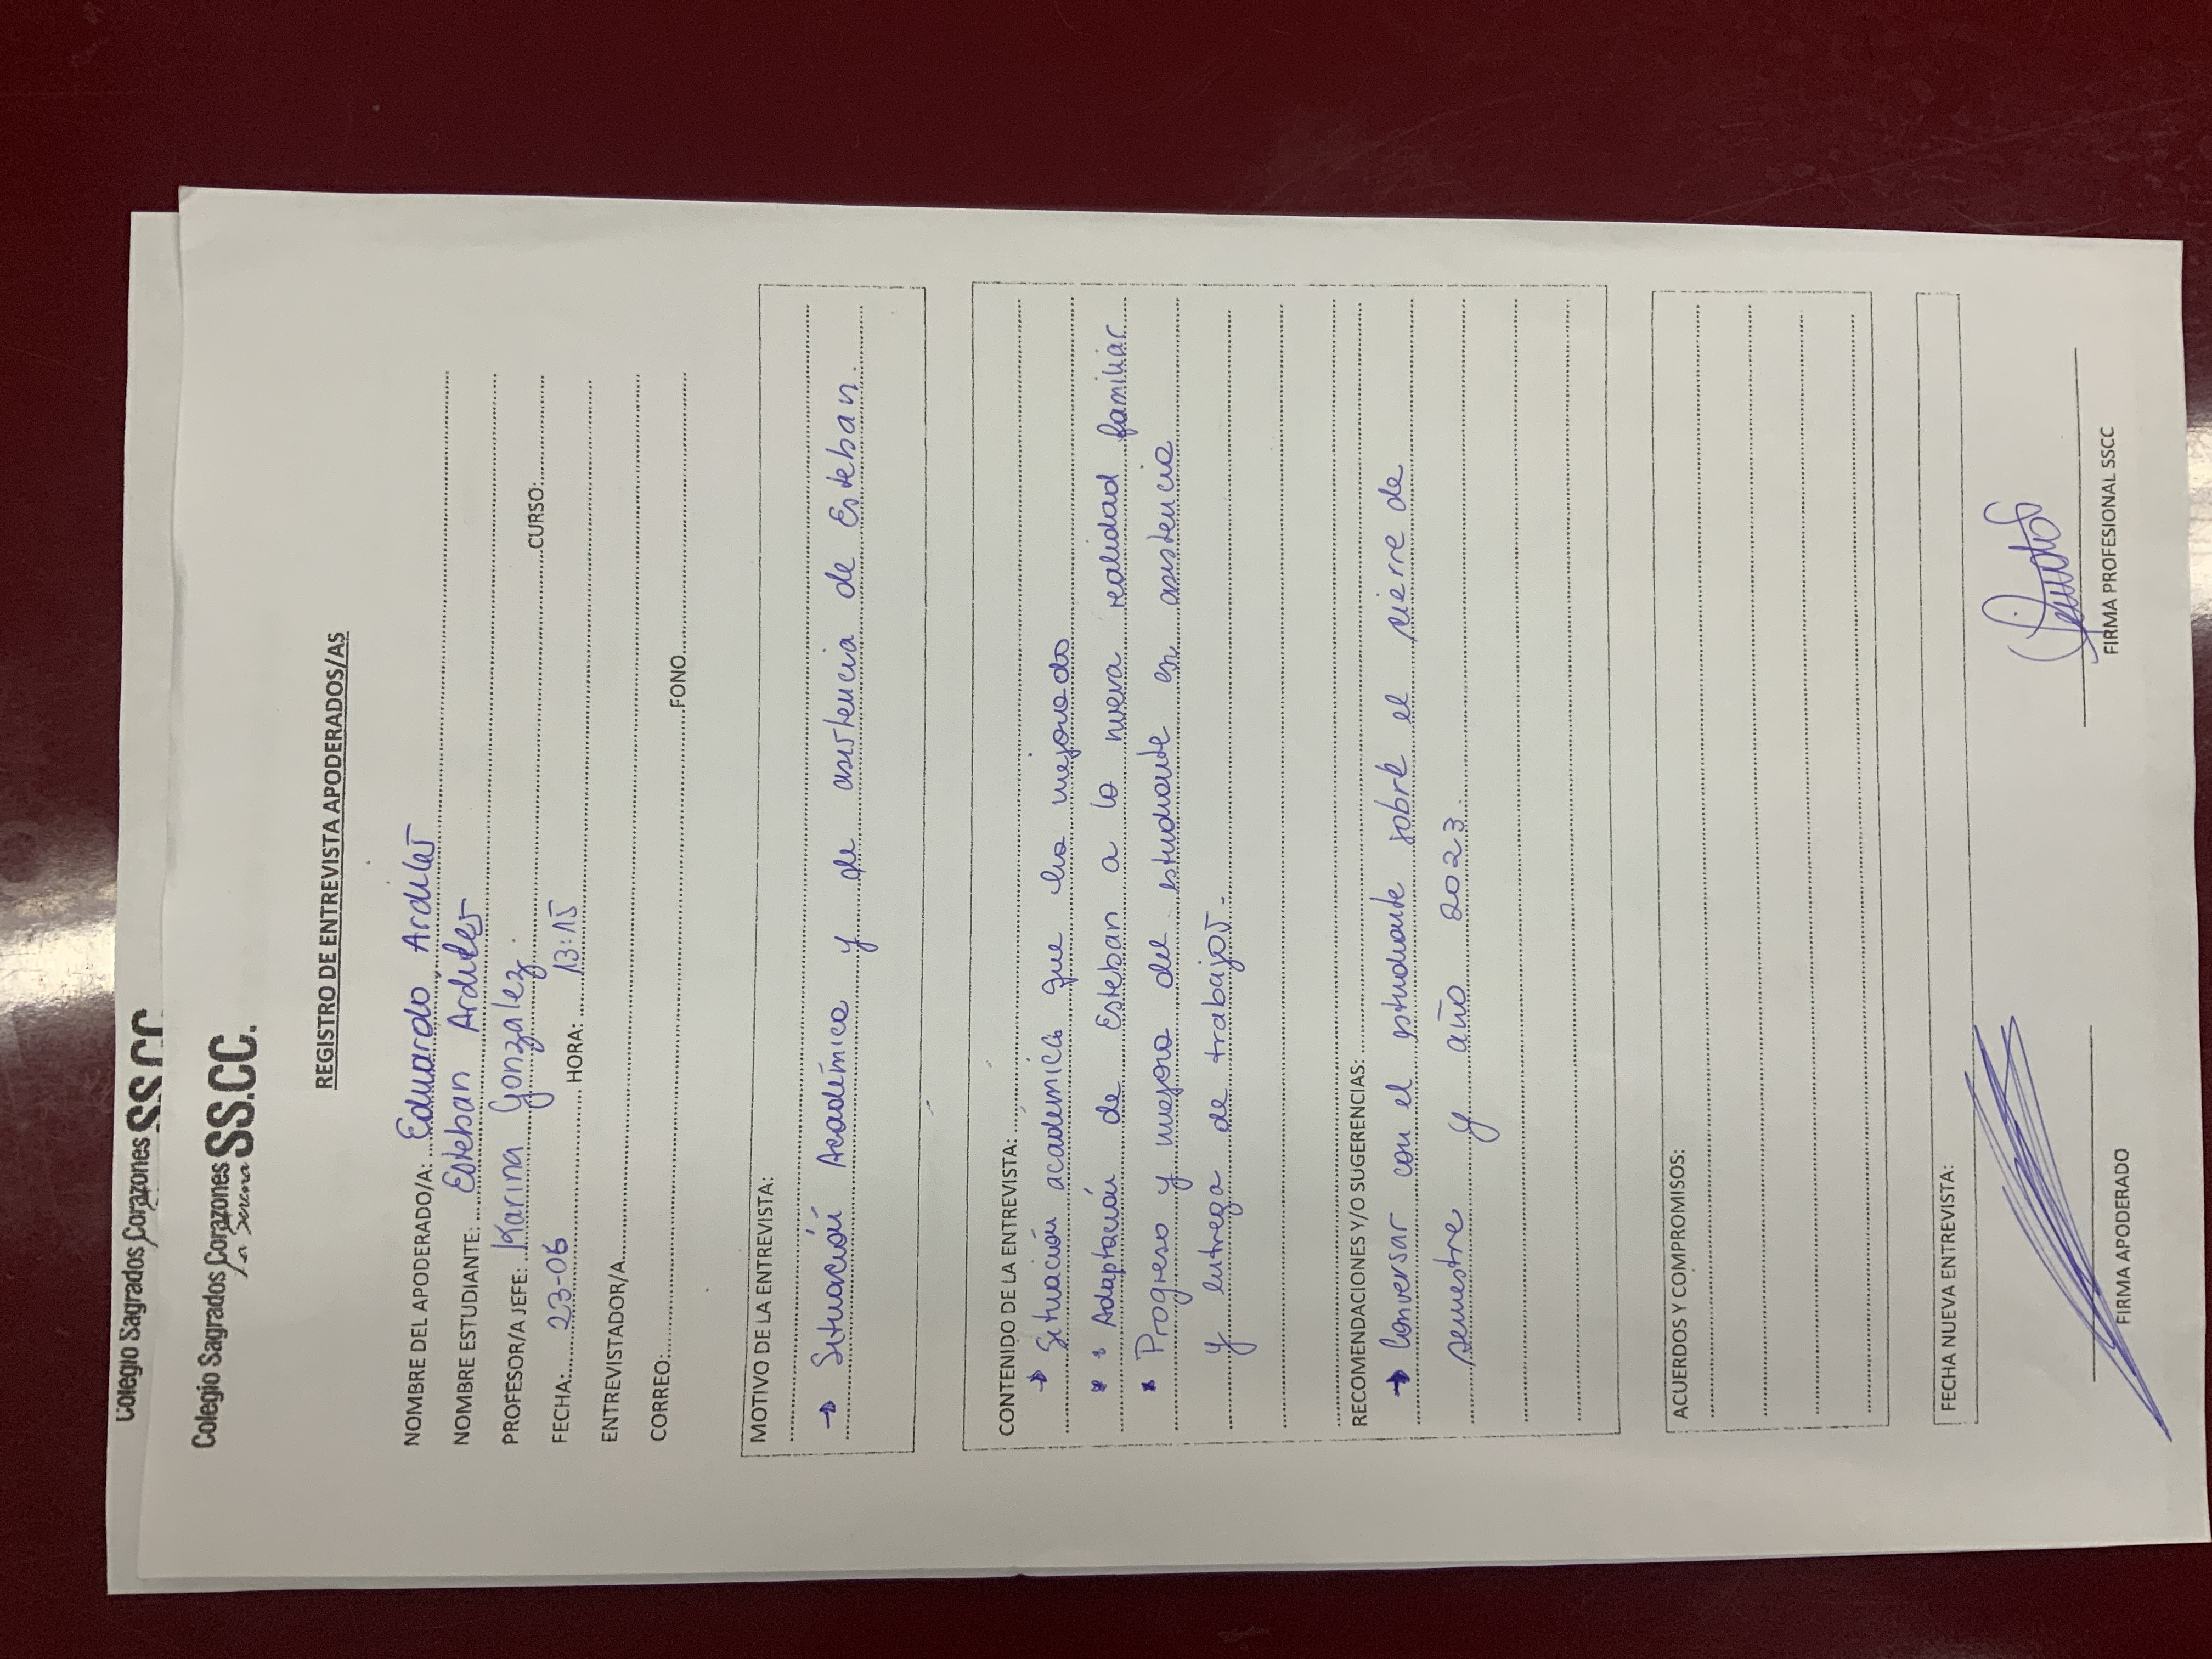 Colegio Sagrados Corazones SS.CC
Colegio Sagrados Corazones SS.CC.
La Serena
REGISTRO DE ENTREVISTA APODERADOS/AS
NOMBRE DEL APODERADO/A: Eduardo Ardiles
NOMBRE ESTUDIANTE: Esteban Ardiles
PROFESOR/A JEFE: Karina Gonzalez. CURSO:
FECHA: 23-06 HORA: 13:15
ENTREVISTADOR/A
CORREO: FONO
MOTIVO DE LA ENTREVISTA:
→ Situación Académica y de asistencia de Esteban.
CONTENIDO DE LA ENTREVISTA:
→ Situación académica que ha mejorado
* Adaptación de Esteban a la nueva realidad familiar
* Progreso y mejora del estudiante en asistencia
y entrega de trabajos.-
RECOMENDACIONES Y/O SUGERENCIAS:
→ Conversar con el estudiante sobre el cierre de
semestre y año 2023.
ACUERDOS Y COMPROMISOS:
FECHA NUEVA ENTREVISTA:
FIRMA APODERADO FIRMA PROFESIONAL SSCC